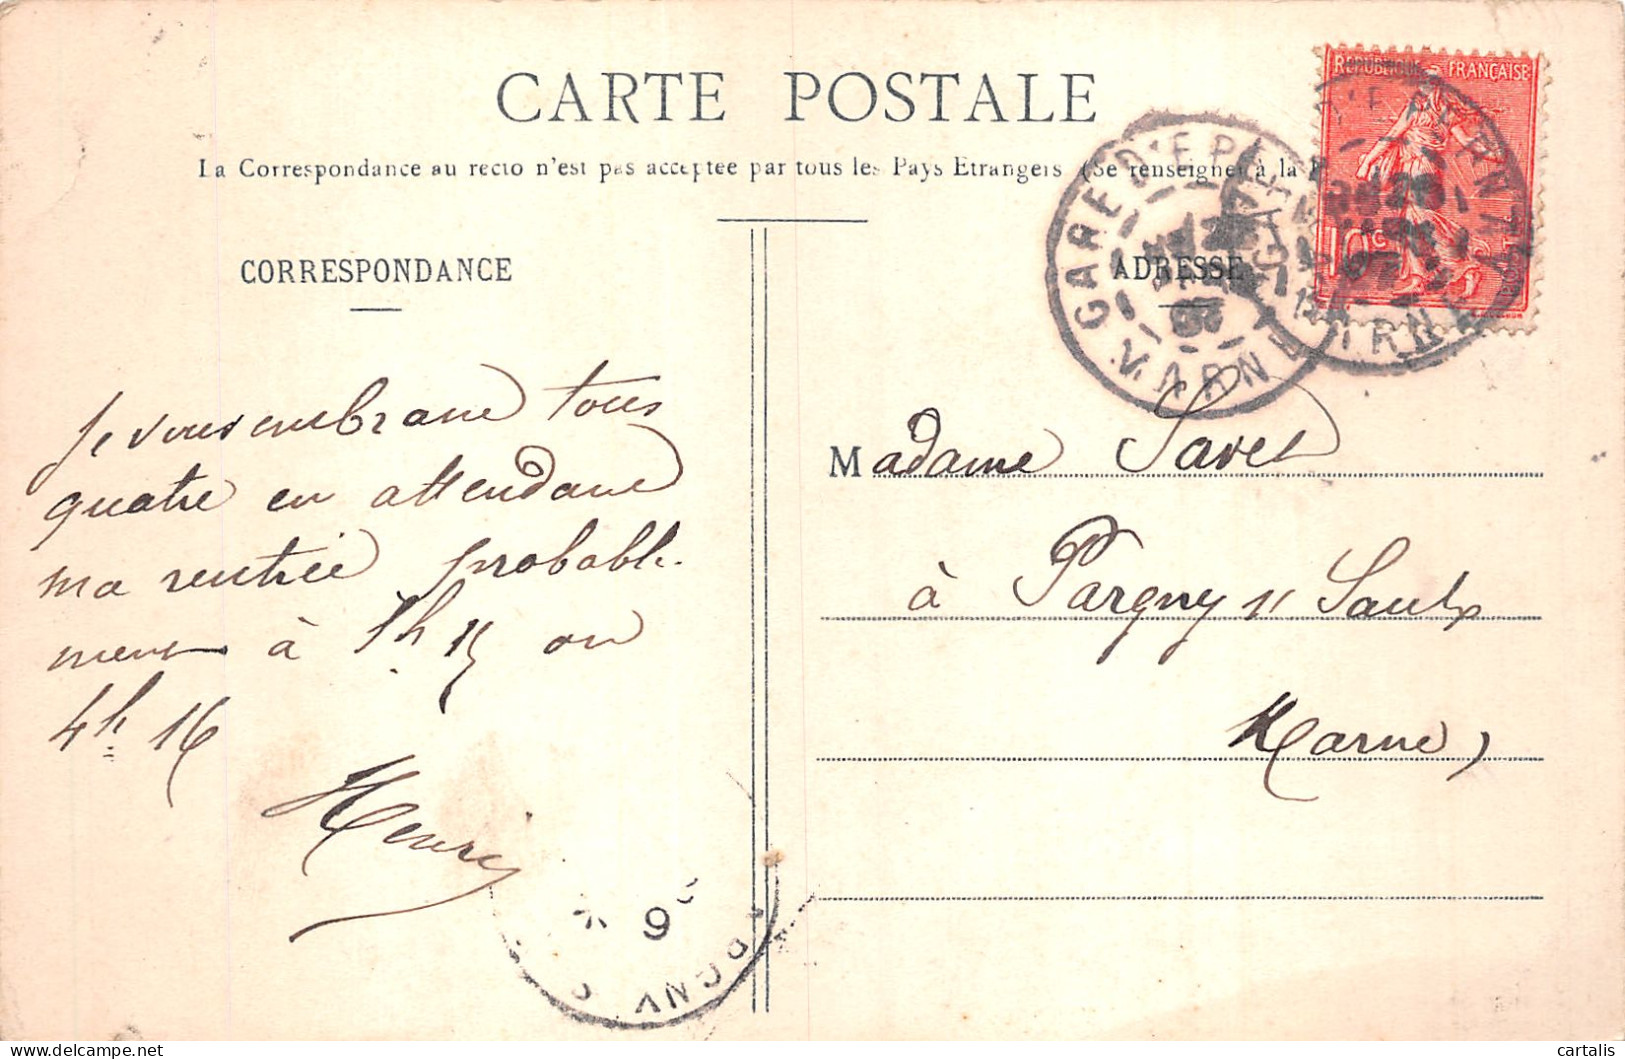 CARTE POSTALE
La Correspondance au recto n'est pas acceptée par tous les Pays Etrangers (Se renseigner à la
CORRESPONDANCE
ADRESSE
REPUBLIQUE FRANÇAISE
10 c
POSTES
GARE D'EPERNAY
MARNE
GARE D'EPERNAY
MARNE
Je vous embrasse tous
quatre en attendant
ma rentrée probable-
ment à 1h 15 ou
4h 16
Henri
Madame Savet
à Pargny s/ Saulx
Marne
cartalis